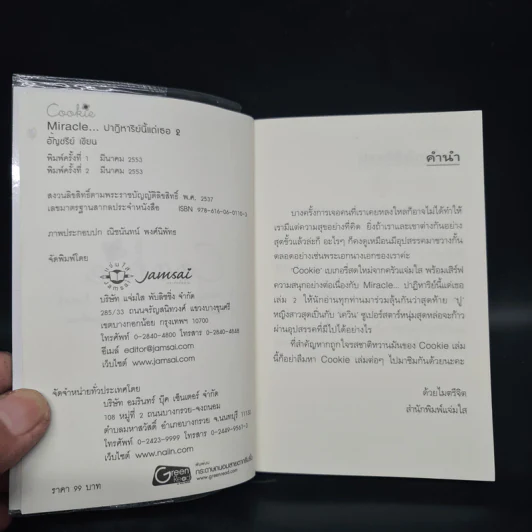 Cookie
Miracle... ปาฏิหาริย์นี้แด่เธอ 2
อัญชรีย์ เขียน
พิมพ์ครั้งที่ 1 มีนาคม 2553
พิมพ์ครั้งที่ 2 มีนาคม 2553
สงวนลิขสิทธิ์ตามพระราชบัญญัติลิขสิทธิ์ พ.ศ. 2537
เลขมาตรฐานสากลประจำหนังสือ ISBN 978-616-06-0115-3
ภาพประกอบปก ณิชนันทน์ พงศ์นิพัทธ
จัดพิมพ์โดย
jamsai
บริษัท แจ่มใส พับลิชชิ่ง จำกัด
285/33 ถนนจรัญสนิทวงศ์ แขวงบางขุนศรี
เขตบางกอกน้อย กรุงเทพฯ 10700
โทรศัพท์ 0-2840-4800 โทรสาร 0-2840-4848
อีเมล์ editor@jamsai.com
เว็บไซต์ www.jamsai.com
จัดจำหน่ายทั่วประเทศโดย
บริษัท อมรินทร์ บุ๊ค เซ็นเตอร์ จำกัด
108 หมู่ที่ 2 ถนนบางกรวย-จงถนอม
ตำบลมหาสวัสดิ์ อำเภอบางกรวย จ.นนทบุรี
โทรศัพท์ 0-2423-9999 โทรสาร
เว็บไซต์ www.naiin.com
ราคา 99 บาท
Green
คำนำ
บางครั้งการเจอคนที่เราเคยหลงใหลก็อาจไม่ได้ทำให้
เรามีแต่ความสุขอย่างที่คิด ยิ่งถ้าเราและเขาต่างกันอย่าง
สุดขั้วแล้วล่ะก็ อะไรๆ ก็คงดูเหมือนมีอุปสรรคมาขวางกั้น
ตลอดอย่างเช่นพระเอกนางเอกของเราค่ะ
'Cookie' เบเกอรีสดใหม่จากครัวแจ่มใส พร้อมเสิร์ฟ
ความสนุกอย่างต่อเนื่องกับ Miracle... ปาฏิหาริย์นี้แด่เธอ
เล่ม 2 ให้นักอ่านทุกท่านมาร่วมลุ้นกันว่าสุดท้าย 'ปู'
หญิงสาวสุดเป็นกับ 'เควิน' ซูเปอร์สตาร์หนุ่มสุดหล่อจะก้าว
ผ่านอุปสรรคที่มีไปได้อย่างไร
ที่สำคัญหากถูกใจรสชาติหวานมันของ Cookie เล่ม
นี้ก็อย่าลืมหา Cookie เล่มต่อๆ ไปมาชิมกันด้วยนะคะ
ด้วยไมตรีจิต
สำนักพิมพ์แจ่มใส